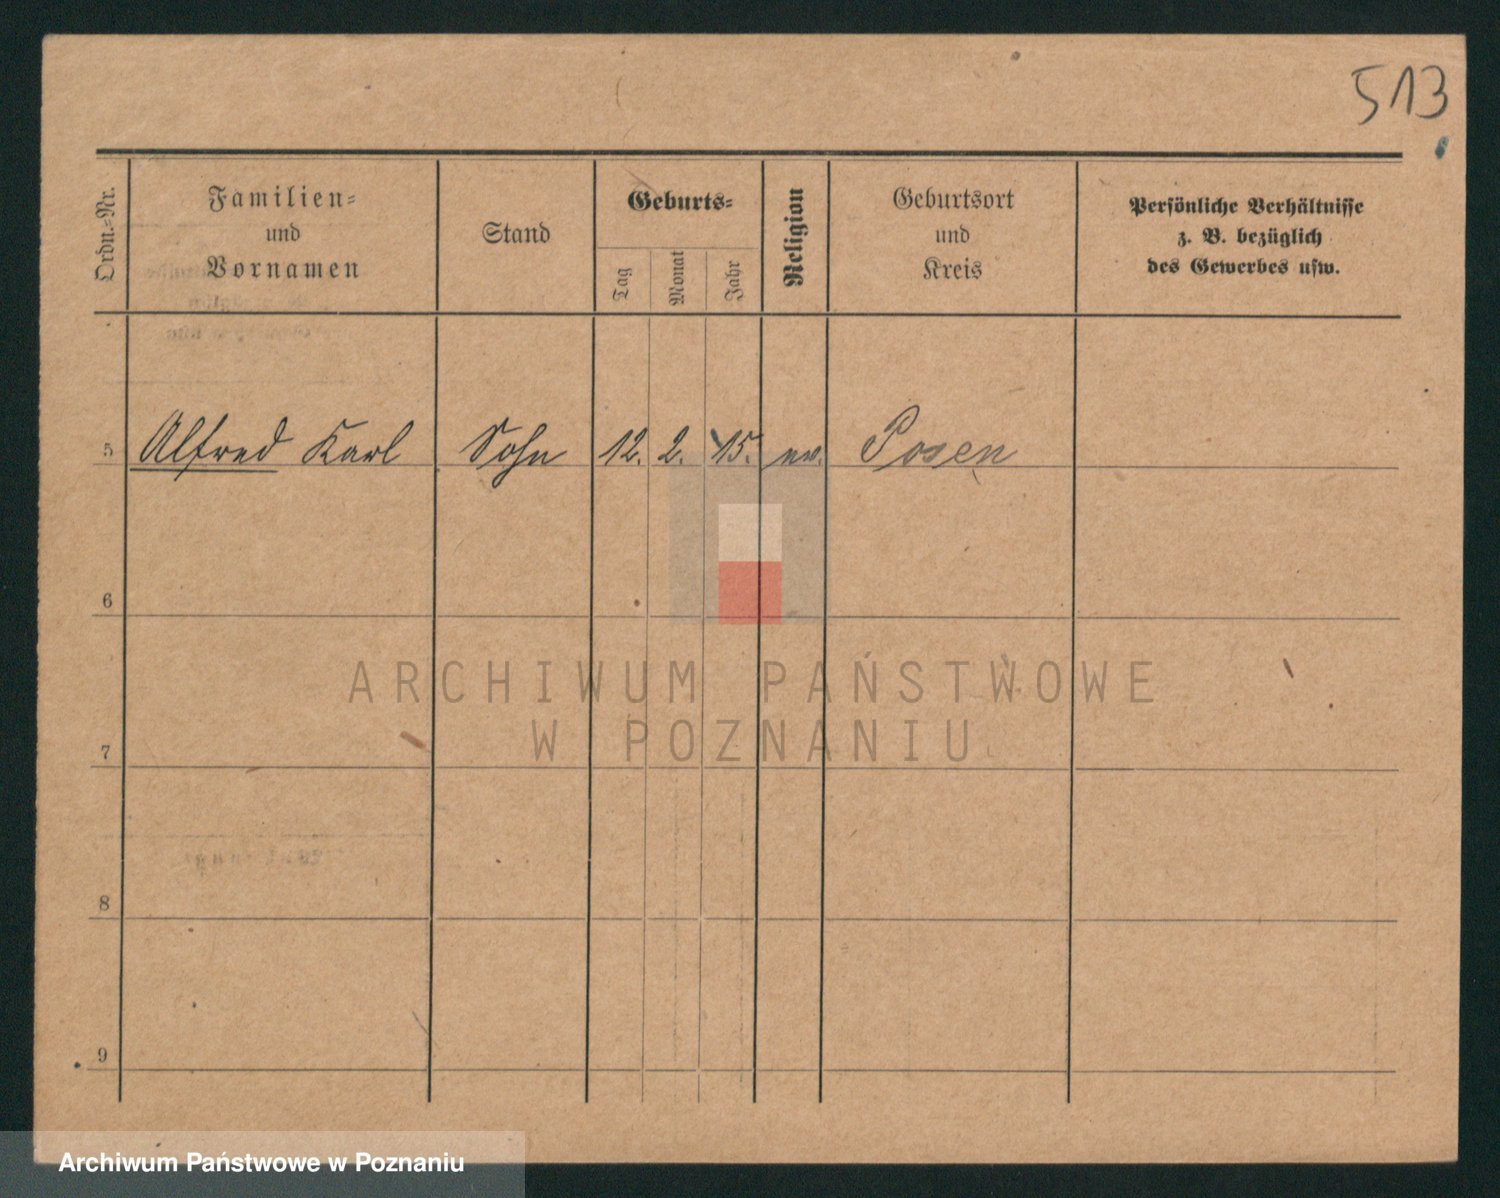 513
Ordn.-Nr.
Familien-
und
Vornamen
Stand
Geburts-
Tag
Monat
Jahr
Religion
Geburtsort
und
Kreis
Persönliche Verhältnisse
z. B. bezüglich
des Gewerbes usw.
5 Alfred Karl Sohn 12. 2. 15. ev. Posen
6
7
8
9
ARCHIWUM PAŃSTWOWE
W POZNANIU
Archiwum Państwowe w Poznaniu